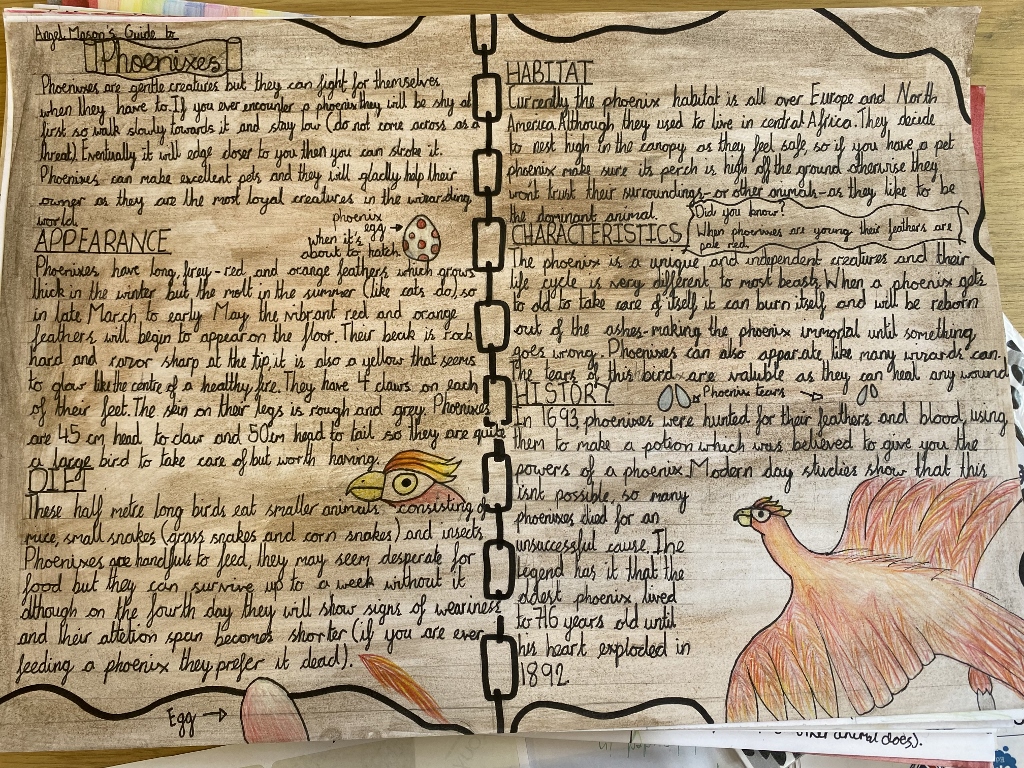 Angel Mason's Guide to
Phoenixes
Phoenixes are gentle creatures but they can fight for themselves
when they have to. If you ever encounter a phoenix they will be shy at
first so walk slowly towards it and stay low (do not come across as a
threat). Eventually it will edge closer to you then you can stroke it.
Phoenixes can make excellent pets and they will gladly help their
owner as they are the most loyal creatures in the wizarding
world.
phoenix
egg
when it's
about to hatch
APPEARANCE
Phoenixes have long, firey-red and orange feathers which grows
thick in the winter but the molt in the summer (like cats do), so
in late March to early May the vibrant red and orange
feathers will begin to appear on the floor. Their beak is rock
hard and razor sharp at the tip, it is also a yellow that seems
to glow like the centre of a healthy fire. They have 4 claws on each
of their feet. The skin on their legs is rough and grey. Phoenixes
are 45 cm head to claw and 50cm head to tail so they are quite
a large bird to take care of but worth having.
DIET
These half metre long birds eat smaller animals consisting of
mice, small snakes (grass snakes and corn snakes) and insects.
Phoenixes are handfuls to feed, they may seem desperate for
food but they can survive up to a week without it
although on the fourth day they will show signs of weariness
and their attetion span becomes shorter (if you are ever
feeding a phoenix they prefer it dead).
Egg
HABITAT
Currently the phoenix habitat is all over Europe and North
America. Although they used to live in central Africa. They decide
to nest high in the canopy as they feel safe, so if you have a pet
phoenix make sure its perch is high off the ground otherwise they
won't trust their surroundings-or other animals-as they like to be
the dominant animal.
Did you know?
When phoenixes are young their feathers are
pale red.
CHARACTERISTICS
The phoenix is a unique and independent creatures and their
life cycle is very different to most beasts. When a phoenix gets
to old to take care of itself it can burn itself and will be reborn
out of the ashes-making the phoenix immortal until something
goes wrong. Phoenixes can also apparate, like many wizards can.
The tears of this bird are valuble as they can heal any wound
HISTORY
Phoenix tears
In 1693, phoenixes were hunted for their feathers and blood, using
them to make a potion which was believed to give you the
powers of a phoenix. Modern day studies show that this
isnt possible, so many
phoenixes died for an
unsuccessful cause. The
legend has it that the
oldest phoenix lived
to 716 years old until
his heart exploded in
1892
animal does).